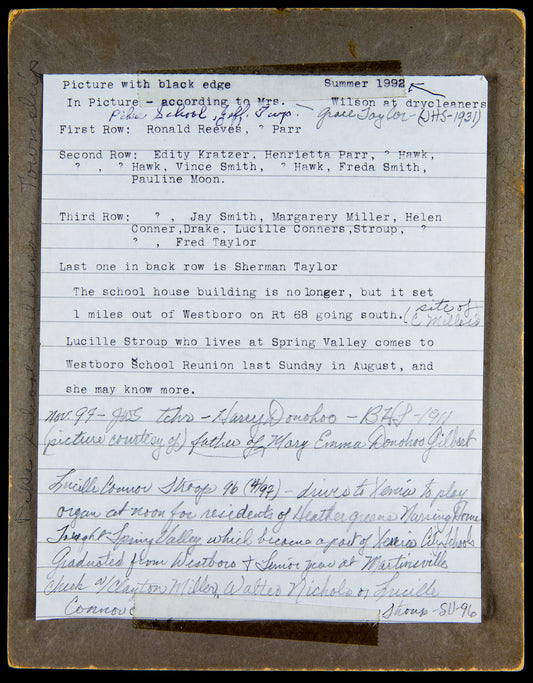 Picture with black edge Summer 1992
In Picture - according to Mrs. Wilson at drycleaners
Pike School, Jeff. Twp. Grace Taylor (JHS-1931)
First Row: Ronald Reeves, ? Parr
Second Row: Edity Kratzer, Henrietta Parr, ? Hawk,
? , ? Hawk, Vince Smith, ? Hawk, Freda Smith,
Pauline Moon.
Third Row: ? , Jay Smith, Margarery Miller, Helen
Conner,Drake, Lucille Conners,Stroup, ?
? , Fred Taylor
Last one in back row is Sherman Taylor
The school house building is no longer, but it set
1 miles out of Westboro on Rt 68 going south. (site of
C Miller's
Lucille Stroup who lives at Spring Valley comes to
Westboro School Reunion last Sunday in August, and
she may know more.
Nov. 97 - JWS tchr - Harey Donohoo - BHS - 1911
(picture courtesy of) father of Mary Emma Donohoo Gilbert
Lucille Connor Stroup 96 (4/97) - drives to Xenia to play
organ at noon for residents of Heathergreene Nursing Home
Taught Spring Valley which became a part of Xenia City Schools
Graduated from Westboro & Senior year at Martinsville
Check w/ Clayton Miller, Walter Nichols or Lucille
Connor Stroup - SV-96
Pike School Township